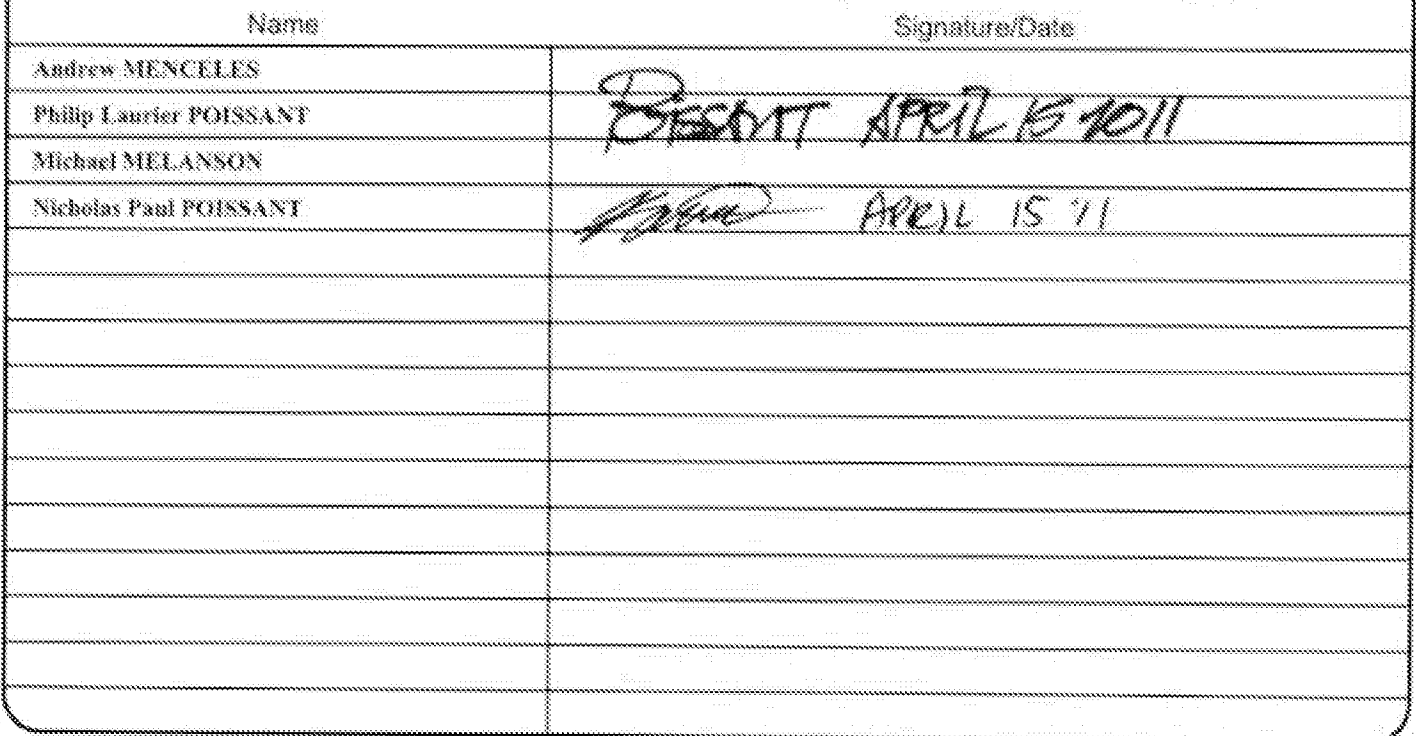 Name Signature/Date
Andrew MENCELES
Philip Laurier POISSANT APRIL 15 2011
Michael MELANSON
Nicholas Paul POISSANT APRIL 15 '11